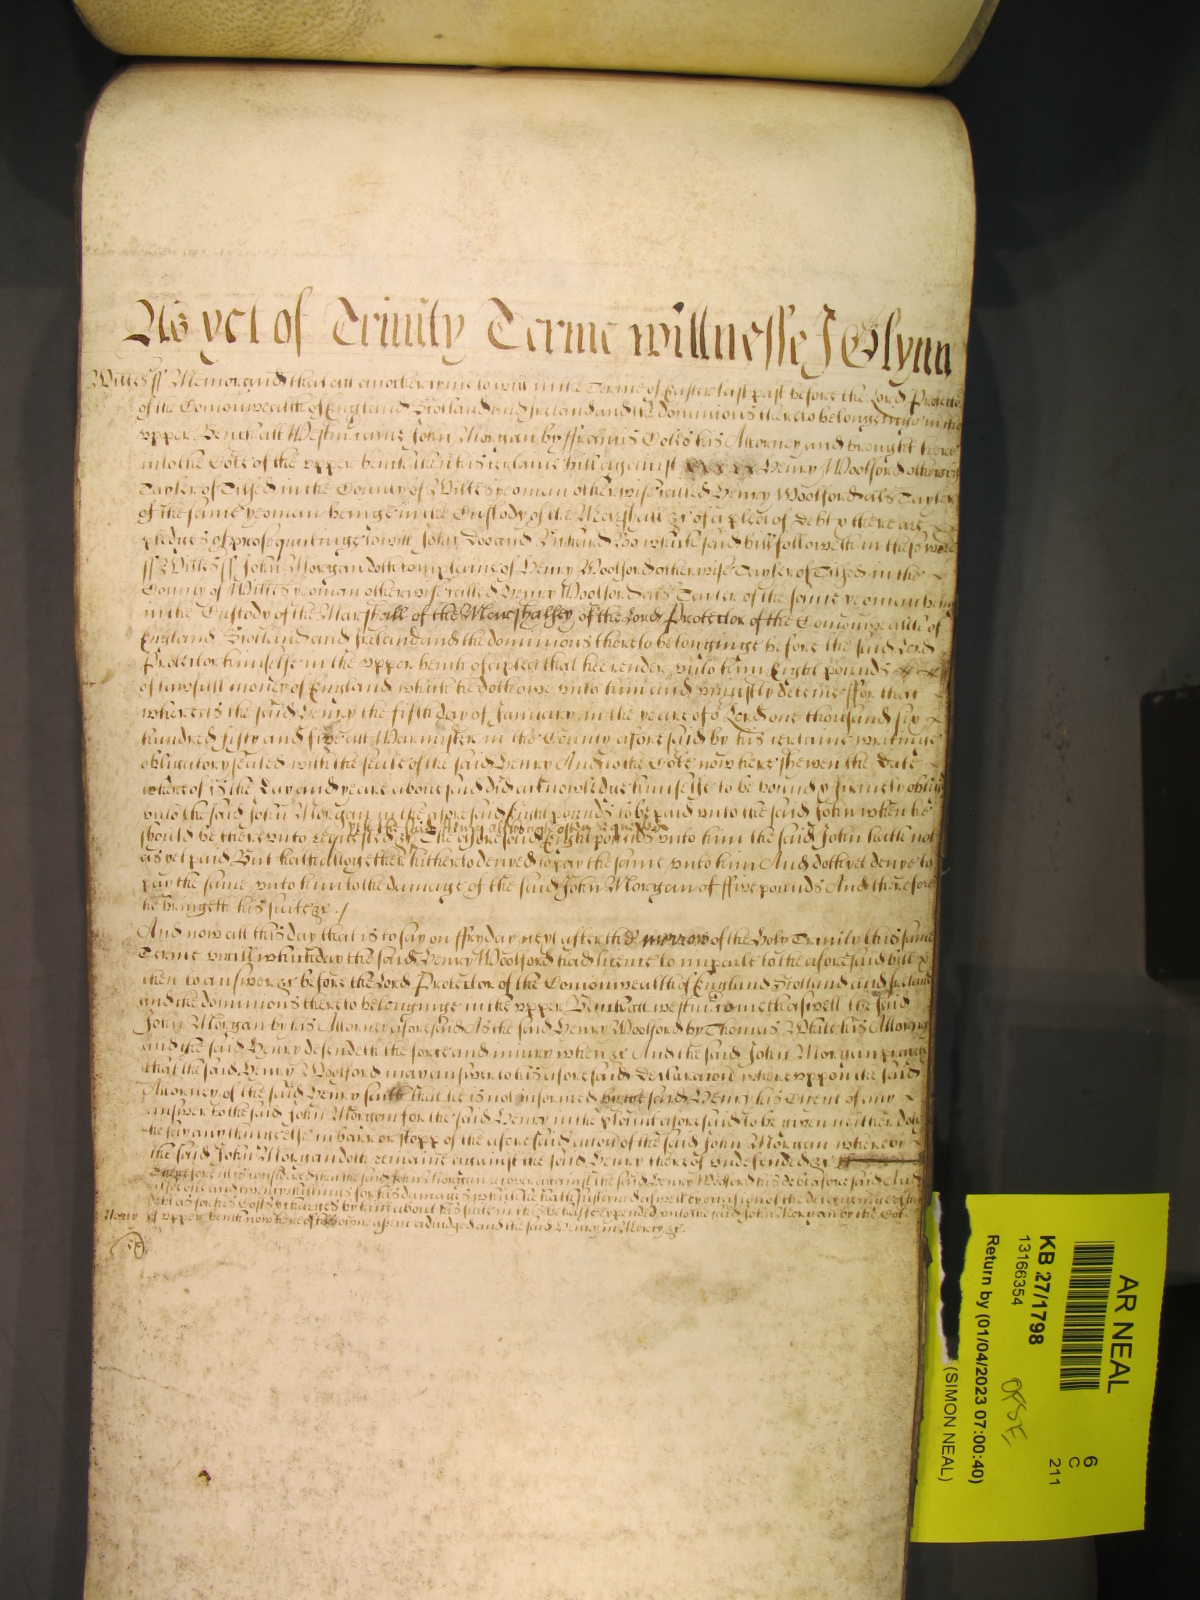 As yet of Trinity Terme wittnesse J Glynn
Wiltes ss Memorand that att another tyme to witt in the Terme of Easter last past before the Lord Protector
of the Comonwealth of England Scotland and Ireland and the dominions thereto belonginge in the
upper Bench att Westm came John Morgan by ffrancis Coles his Attorney and brought here
into the Cort of the upper bench then his certaine bill against Henry Woolford otherwise
Tayler of Tilsed in the County of Wiltes yeoman otherwise called Henry Woolford als Tayler
of the same yeoman beinge in the Custody of the Marshall &c of a plea of debt & there are
pledges of prosequutinge to witt John Doo and Richard Roo which said bill followeth in these words
ss Wiltes ss John Morgan doth complaine of Henry Woolford otherwise Tayler of Tilsed in the
County of Wiltes yeoman otherwise called Henry Woolford als Tayler of the same yeoman beinge
in the Custody of the Marshall of the Marshalsey of the Lord Protector of the Comonwealth of
England Scotland and Ireland and the dominions thereto belonginge before the said Lord
Protector himselfe in the upper bench of a plea that hee render unto him Eight pounds
of lawfull money of England which he doth owe unto him and uniustly deteines ffor that
whereas the said Henry the fifth day of January in the yeare of or Lord one thousand six
hundred fifty and five att Warmister in the County aforesaid by his certaine writinge
obligatory sealed with the seale of the said Henry And to the Cort now here shewen the date
whereof is the day and yeare abovesaid did acknowledge himselfe to be bound & firmely oblig
unto the said John Morgan in the aforesaid Eight pounds to be paid unto the said John when he
yet the said Henry although often requested
should be thereunto requested &c The aforesaid Eight pounds unto him the said John hath not
as yet paid But hath altogether hitherto denyed to pay the same unto him And doth yet denye to
pay the same unto him to the damage of the said John Morgan of ffive pounds And therefore
he bringeth his suite &c /
And now att this day that is to say on ffryday next after the morrow of the Holy Trinity this same
Terme untill which day the said Henry Woolford had licence to imparle to the aforesaid bill &
then to answer &c before the Lord Protector of the Comonwealth of England Scotland and Ireland
and the dominions thereto belonginge in the upper Bench att westm cometh aswell the said
John Morgan by his Attorney aforesaid As the said Henry Woolford by Thomas White his Attorny
and the said Henry defendeth the force and iniury when &c And the said John Morgan prayeth
that the said Henry Woolford may answer to his aforesaid declaracion whereuppon the said
Attorney of the said Henry saith that he is not informed by the said Henry his Clyent of any
answer to the said John Morgan for the said Henry in the plaint aforesaid to be given neither doth
he say any thinge else in barr or stopp of the aforesaid accon of the said John Morgan whereby
the said John Morgan doth remaine against the said Henry thereof undefended &c
Therefore it is considered that the said John Morgan recover against the said Henry Woolford his debt aforesaid And
alsoe one and twenty shillings for his damages which he hath susteyned aswell by occasion of the deteyninge of that
debt as for his Costs & charges by him about his suite in this behalfe expended unto the said John Morgan by the Cort
Mercy of upper bench now here of his owne assent adiudged and the said Henry in Mercy &c
AR NEAL
6
C
211
KB 27/1798
13166354
Return by (01/04/2023 07:00:40)
(SIMON NEAL)